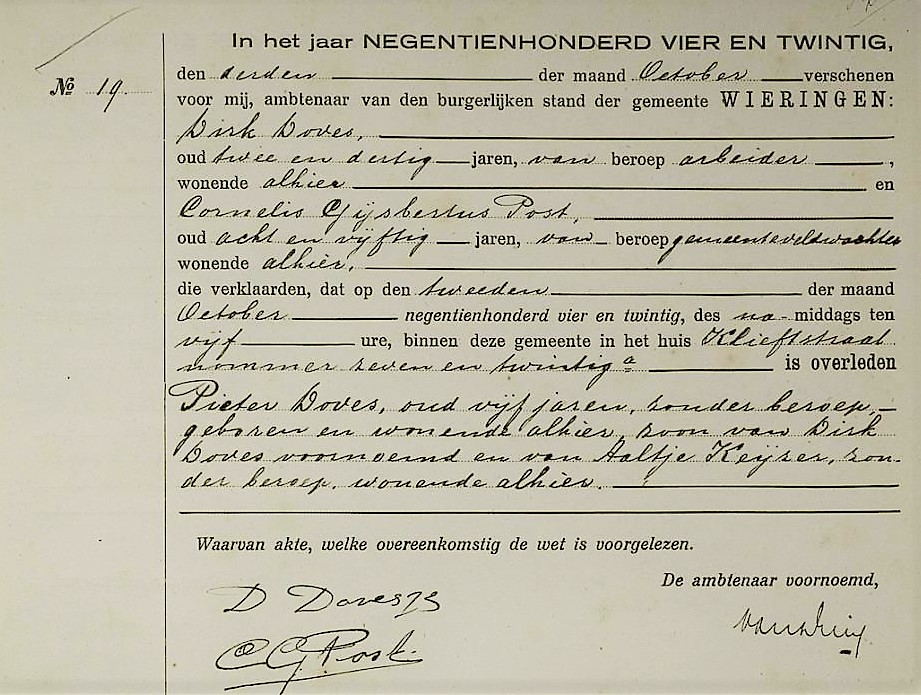 In het jaar NEGENTIENHONDERD VIER EN TWINTIG,
№ 19.
den derden der maand October verschenen
voor mij, ambtenaar van den burgerlijken stand der gemeente WIERINGEN:
Dirk Doves,
oud twee en dertig jaren, van beroep arbeider,
wonende alhier en
Cornelis Gijsbertus Post,
oud acht en vijftig jaren, van beroep gemeenteveldwachter
wonende alhier,
die verklaarden, dat op den tweeden der maand
October negentienhonderd vier en twintig, des na-middags ten
vijf ure, binnen deze gemeente in het huis Klieftstraat
nommer zeven en twintig a is overleden
Pieter Doves, oud vijf jaren, zonder beroep,
geboren en wonende alhier, zoon van Dirk
Doves voornoemd en van Aaltje Keijzer, zon-
der beroep, wonende alhier.
Waarvan akte, welke overeenkomstig de wet is voorgelezen.
De ambtenaar voornoemd,
D Doves
C G Post.